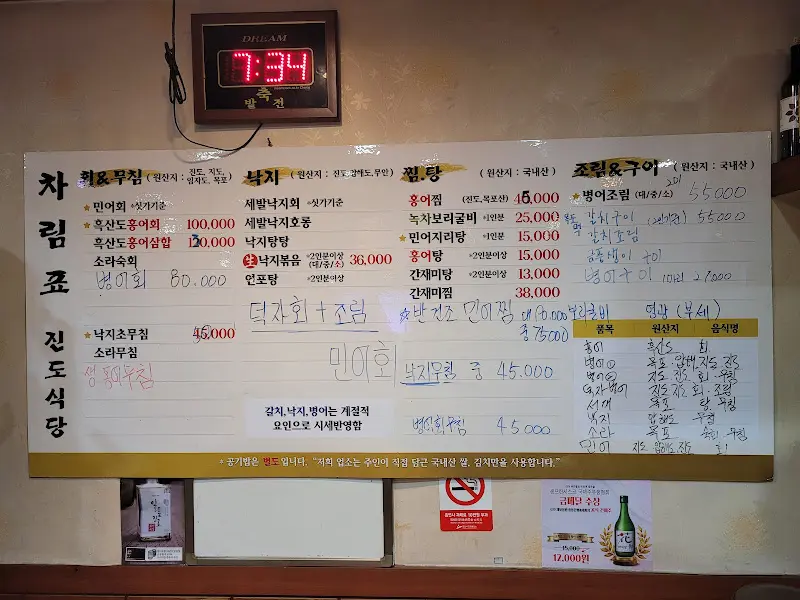 DREAM
7:34
축
발 전
차림표
진도식당
회&무침 (원산지 : 진도, 지도, 임자도, 목포)
*민어회 *싯가기준
*흑산도홍어회 100,000
*흑산도홍어삼합
소라숙회
병어회 80.000
*낙지초무침
소라무침
생 홍어무침
낙지 (원산지 : 진도,압해도,무안)
세발낙지회 *싯가기준
세발낙지호롱
낙지탕탕
生낙지볶음 *2인분이상 (대/중/소) 36,000
연포탕 *2인분이상
덕자회 + 조림
민어회
갈치,낙지,병어는 계절적
요인으로 시세반영함
찜.탕 (원산지 : 국내산)
홍어찜 (진도,목포산) 45,000
녹차보리굴비 *1인분 25,000
*민어지리탕 *1인분 15,000
홍어탕 *2인분이상 15,000
간재미탕 *2인분이상 13,000
간재미찜 38,000
반건조 민어찜
중 75000
낙지무침 중 45.000
병어회무침 45000
조림&구이 (원산지 : 국내산)
*병어조림 (대/중/소) 2인 55000
먹갈치구이 55000
갈치조림
병어구이 1마리 27,000
보리굴비 영광 (부세)
품목 원산지 음식명
홍어 흑산도 회
병어 목포 압해 지도 진도
병어 지도 진도 회 무침
덕자병어 지도 진도 회 조림
서대 목포 탕 무침
낙지 압해도 무침
소라 목포 숙회 무침
민어 지도 압해도 진도 회
* 공기밥은 별도입니다. "저희 업소는 주인이 직접 담근 국내산 쌀, 김치만을 사용합니다."
금메달 수상
15,000
12,000원